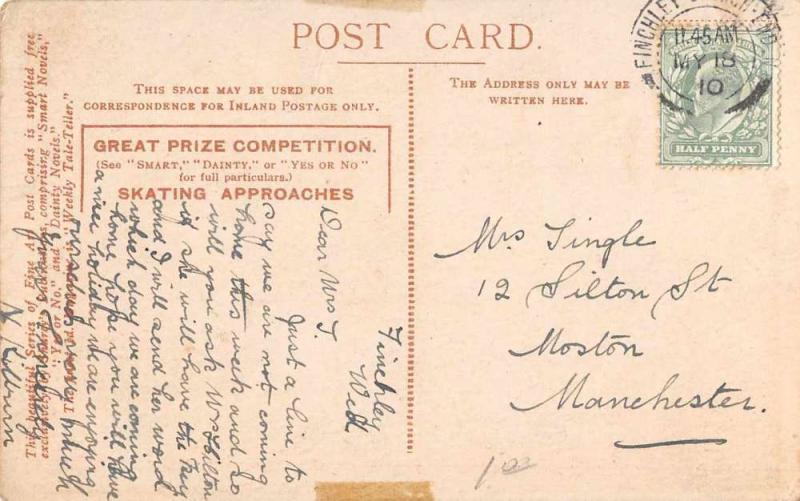 POST CARD.
THIS SPACE MAY BE USED FOR
CORRESPONDENCE FOR INLAND POSTAGE ONLY.
THE ADDRESS ONLY MAY BE
WRITTEN HERE.
GREAT PRIZE COMPETITION.
(See "SMART," "DAINTY," or "YES OR NO"
for full particulars.)
SKATING APPROACHES
This beautiful Series of Fine Art Post Cards is supplied free
exclusively by comprising "Smart Novels,"
"Yes or No" and "Dainty Novels,"
The "Weekly Tale-Teller."
FINCHLEY
11.45AM
MY 18
10
HALF PENNY
Finchley
Wed
Dear Mrs T.
Just a line to
say we are not coming
home this week and so
will you ask Mrs
if she will leave the Key
and I will send her word
which day we are coming
home hope you will have
a nice holiday we are enjoying
ourselves very much
N Kilburn
Mrs Tingle
12 Silton St
Moston
Manchester.
1.00